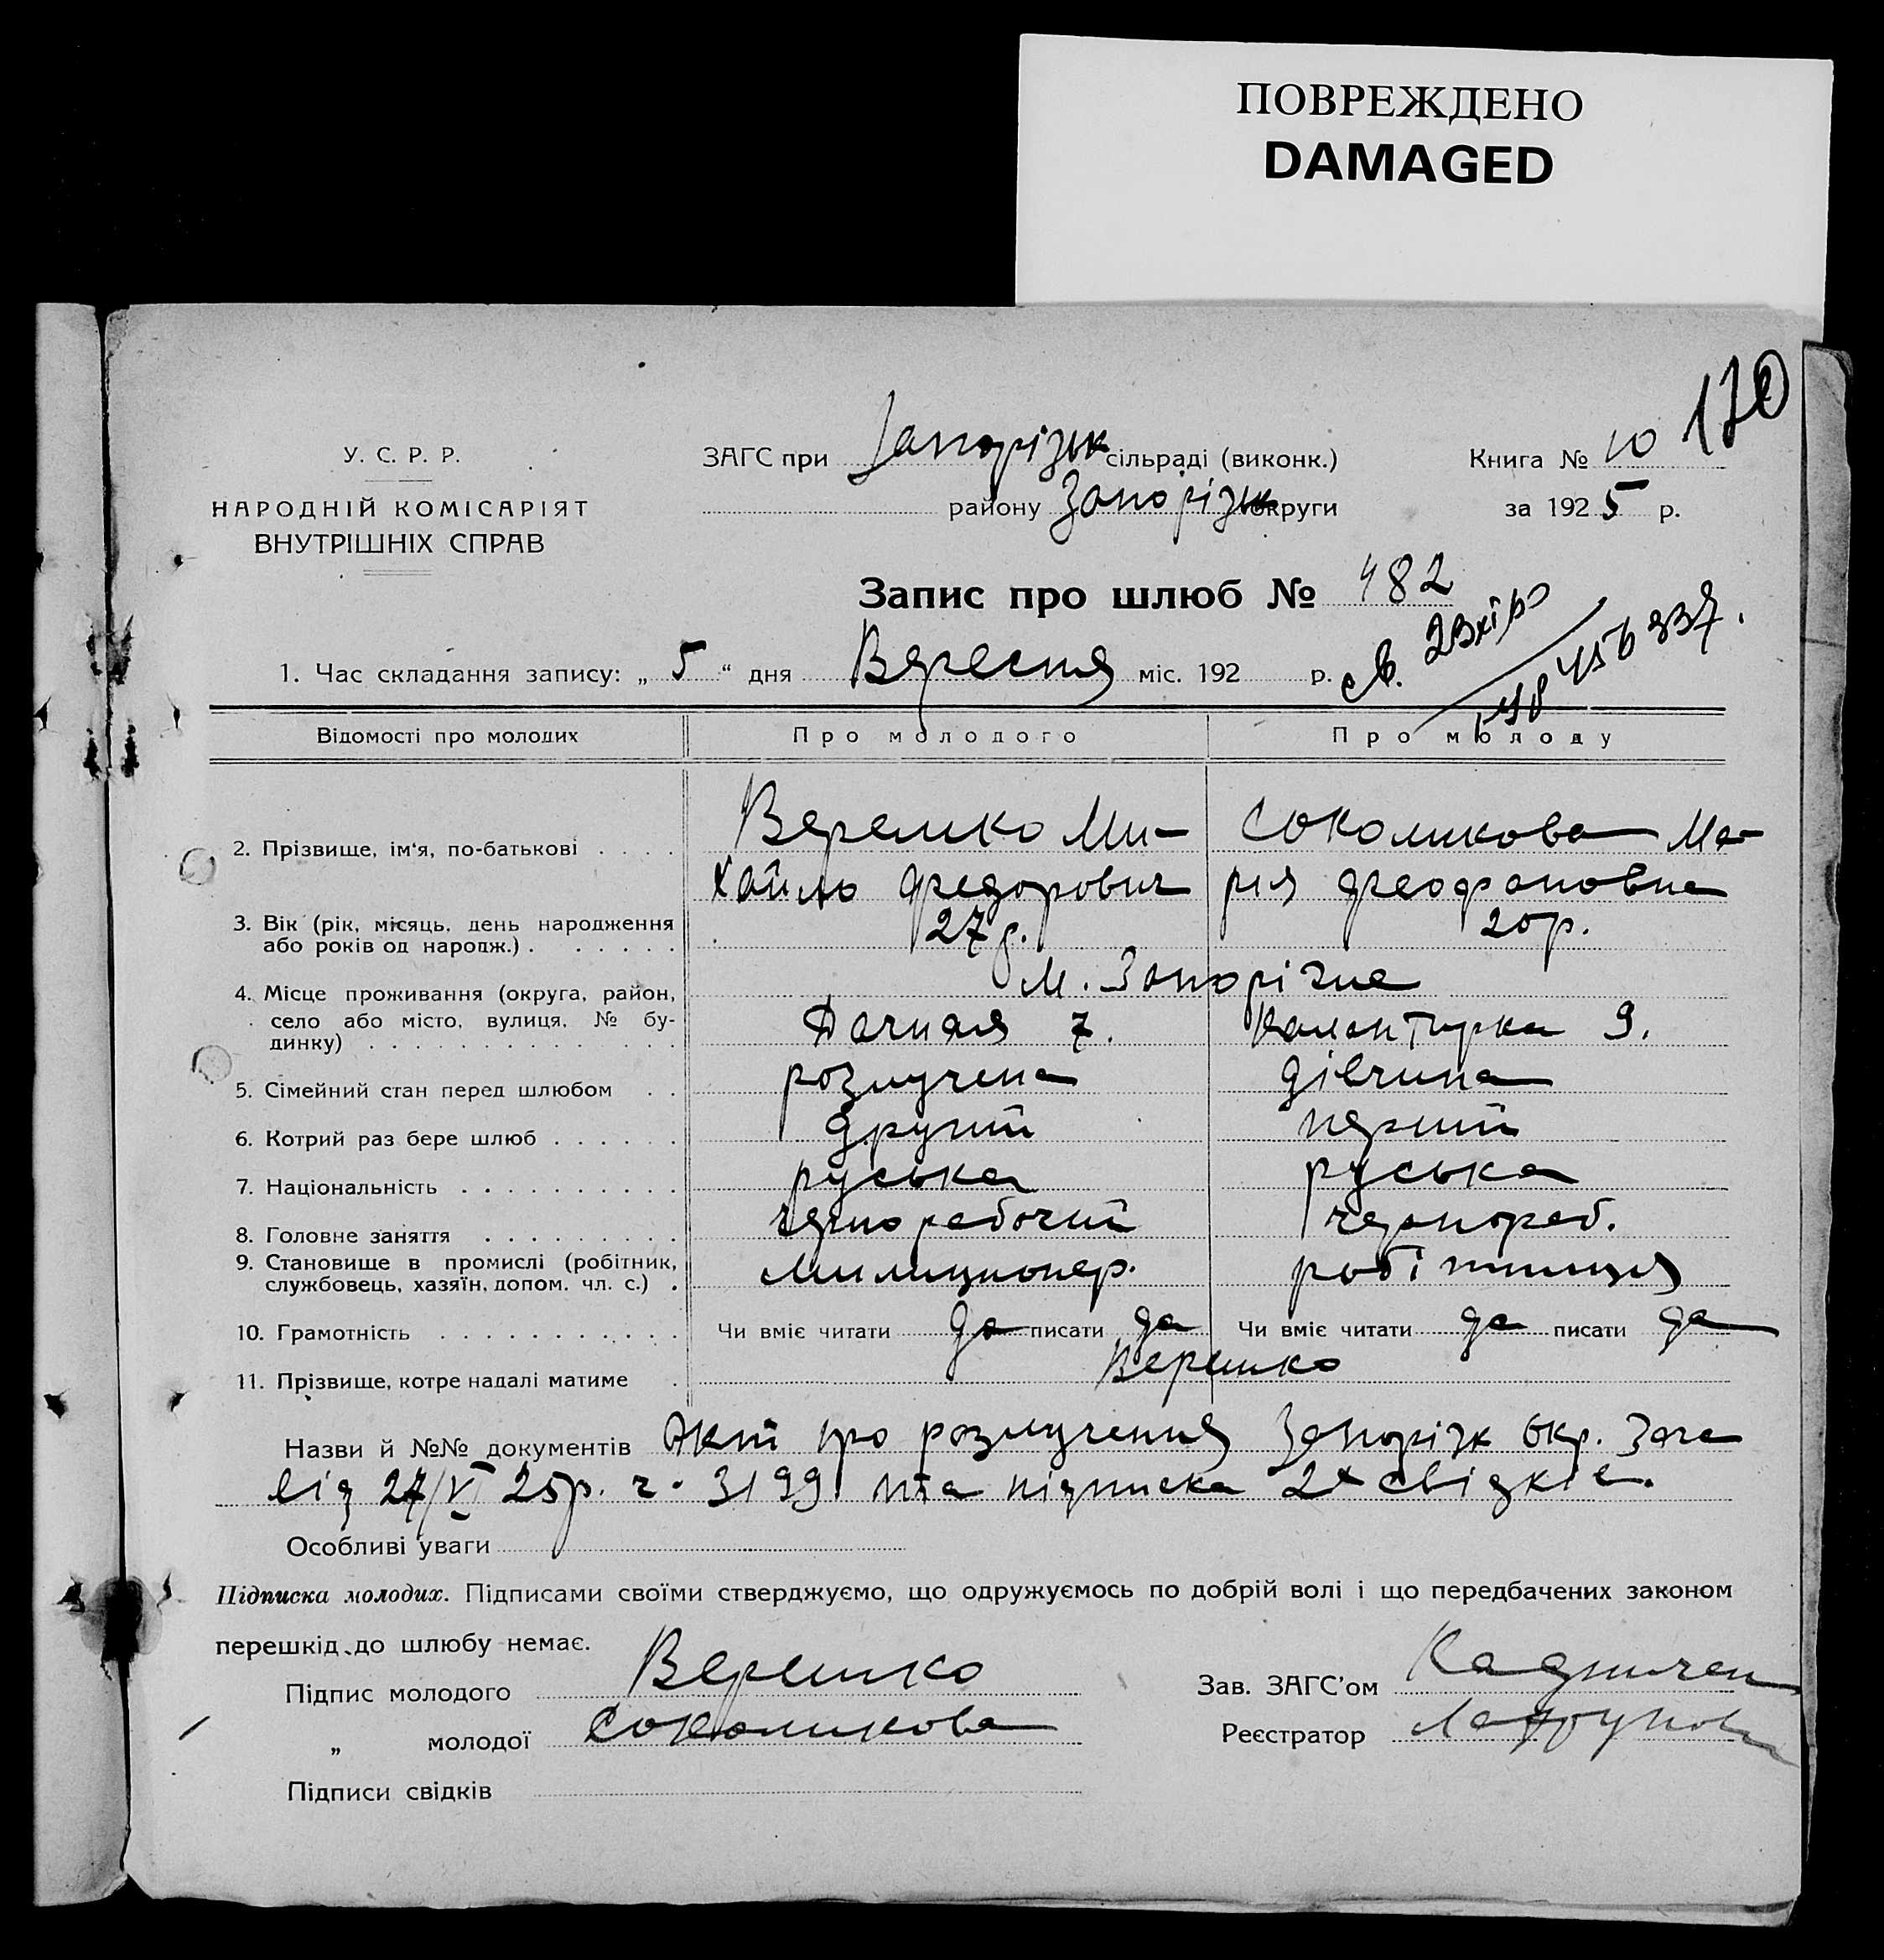 ПОВРЕЖДЕНО
DAMAGED
170
У. С. Р. Р.
НАРОДНІЙ КОМІСАРІЯТ
ВНУТРІШНІХ СПРАВ
ЗАГС при Запорізьк сільраді (виконк.)
району Запорізьк округи
Книга № 10
за 1925 р.
Запис про шлюб № 482
1. Час складання запису: „ 5 “ дня Вересня міс. 192 р.
Відомості про молодих Про молодого Про молоду
2. Прізвище, ім'я, по-батькові . . . . Веремко Ми- Соколикова Ма-
хайло Федорович рия Феофановна
3. Вік (рік, місяць, день народження
або років од народж.) . . . . . . 27 р. 20 р.
м. Запоріжже
4. Місце проживання (округа, район,
село або місто, вулиця, № бу-
динку) . . . . . . . . . . . . Дачная 7. 9.
5. Сімейний стан перед шлюбом . . розлучена дівчина
6. Котрий раз бере шлюб . . . . . . другий перший
7. Національність . . . . . . . . . . руська руська
8. Головне заняття . . . . . . . . . чернорабочий чернораб.
9. Становище в промислі (робітник,
службовець, хазяїн, допом. чл. с.) . Милиционер. робітниця
10. Грамотність . . . . . . . . . . . . Чи вміє читати да писати да Чи вміє читати да писати да
11. Прізвище, котре надалі матиме . Веремко
Назви й №№ документів Акт про розлучення Запорізк Окр. Загса
від 27/VI 25р. ч. 3199 та підписка 2х свідків.
Особливі уваги
Підписка молодих. Підписами своїми стверджуємо, що одружуємось по добрій волі і що передбачених законом
перешкід до шлюбу немає.
Підпис молодого Веремко
„ молодої Соколикова
Підписи свідків
Зав. ЗАГС'ом
Реєстратор